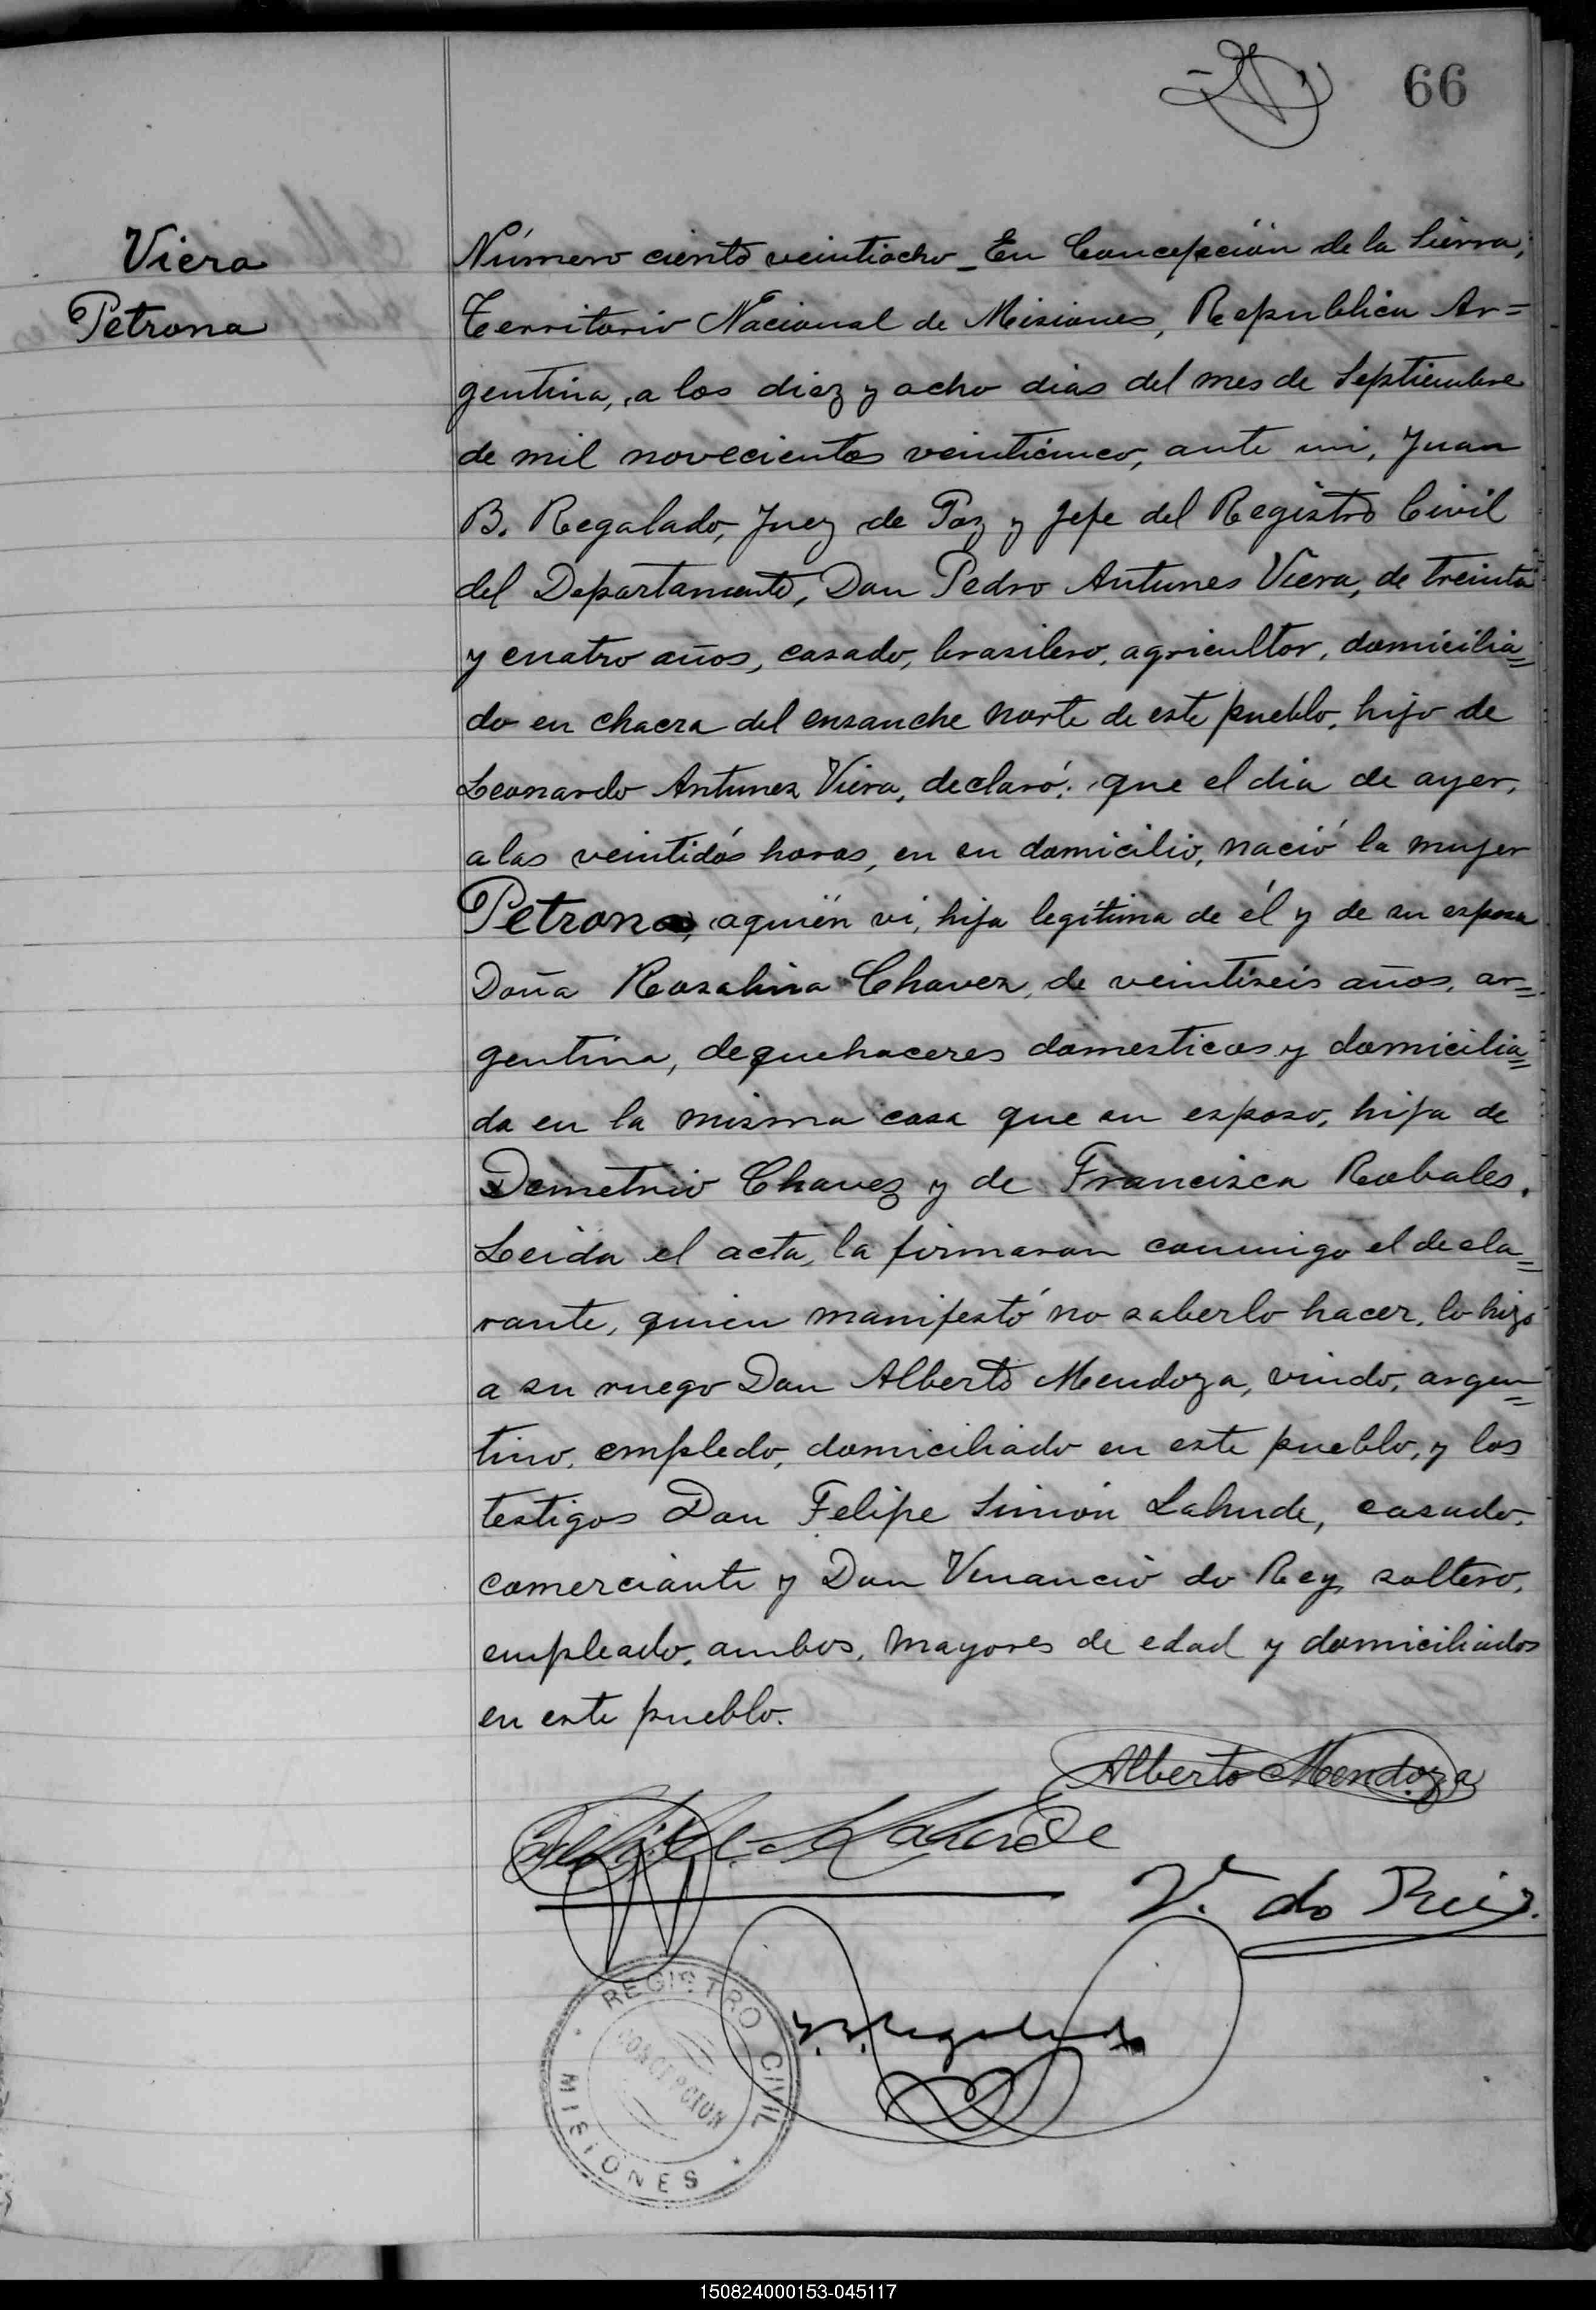 66
Viera
Petrona
Número ciento veintiocho _ En Concepción de la Sierra,
Territorio Nacional de Misiones, Republica Ar=
gentina, a los diez y ocho dias del mes de Septiembre
de mil novecientos veinticinco, ante mi, Juan
B. Regalado, Juez de Paz y Jefe del Registro Civil
del Departamento, Don Pedro Antunes Viera, de treinta
y cuatro años, casado, brasilero, agricultor, domicilia=
do en chacra del ensanche norte de este pueblo, hijo de
Leonardo Antunez Viera, declaró: que el dia de ayer,
a las veintidós horas, en su domicilio, nació la mujer
Petrona, a quién vi, hija legítima de él y de su esposa
Doña Rosalina Chavez, de veintiseis años, ar=
gentina, de quehaceres domesticos y domicilia=
da en la misma casa que su esposo, hija de
Demetrio Chavez y de Francisca Robales.
Leida el acta, la firmaron conmigo el decla=
rante, quien manifestó no saberlo hacer, lo hizo
a su ruego Don Alberto Mendoza, viudo, argen=
tino, empledo, domiciliado en este pueblo, y los
testigos Don Felipe Simón Lahude, casado,
comerciante y Don Venancio do Rey, soltero,
empleado, ambos, mayores de edad y domiciliados
en este pueblo.
Alberto Mendoza
Lahude
V. do Rei
J. B. Regalado
REGISTRO CIVIL
CONCEPCION
MISIONES
150824000153-045117